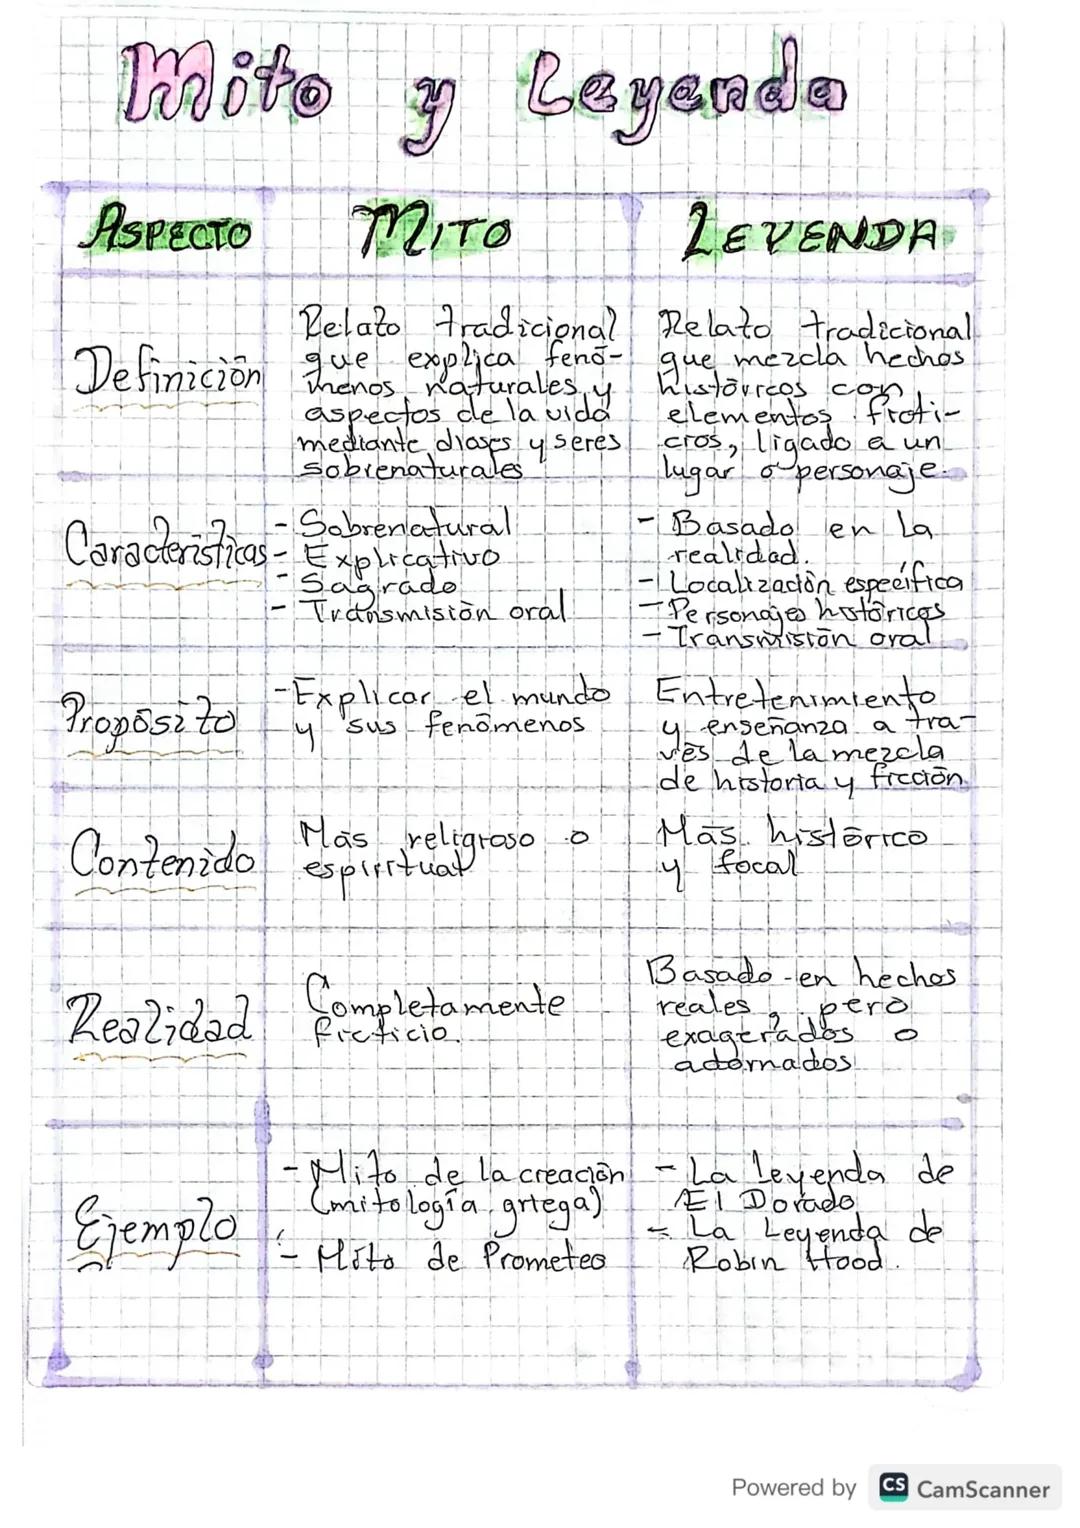 Mito y Leyenda
ASPECTO MITO LEYENDA
Definición
Relato tradicional
que explica fenó-
menos naturales y
aspectos de la vida
mediante dioses y seres
sobrenaturales
Relato tradicional
que mezcla hechos
históricos con
elementos ficti-
cios, ligado a un
lugar o personaje.
Características
- Sobrenatural
- Explicativo
- Sagrado
- Transmisión oral
- Basado en la
realidad.
- Localización específica
- Personajes históricos
- Transmisión oral
Propósito
- Explicar el mundo
y sus fenómenos
Entretenimiento
y enseñanza a tra-
vés de la mezcla
de historia y ficción
Contenido
Más religioso o
espiritual
Más histórico
y focal
Realidad
Completamente
ficticio.
Basado en hechos
reales, pero
exagerados o
adornados
Ejemplo
- Mito de la creación
(mitología griega)
- Mito de Prometeo
- La leyenda de
El Dorado
- La Leyenda de
Robin Hood.
Powered by CS CamScanner